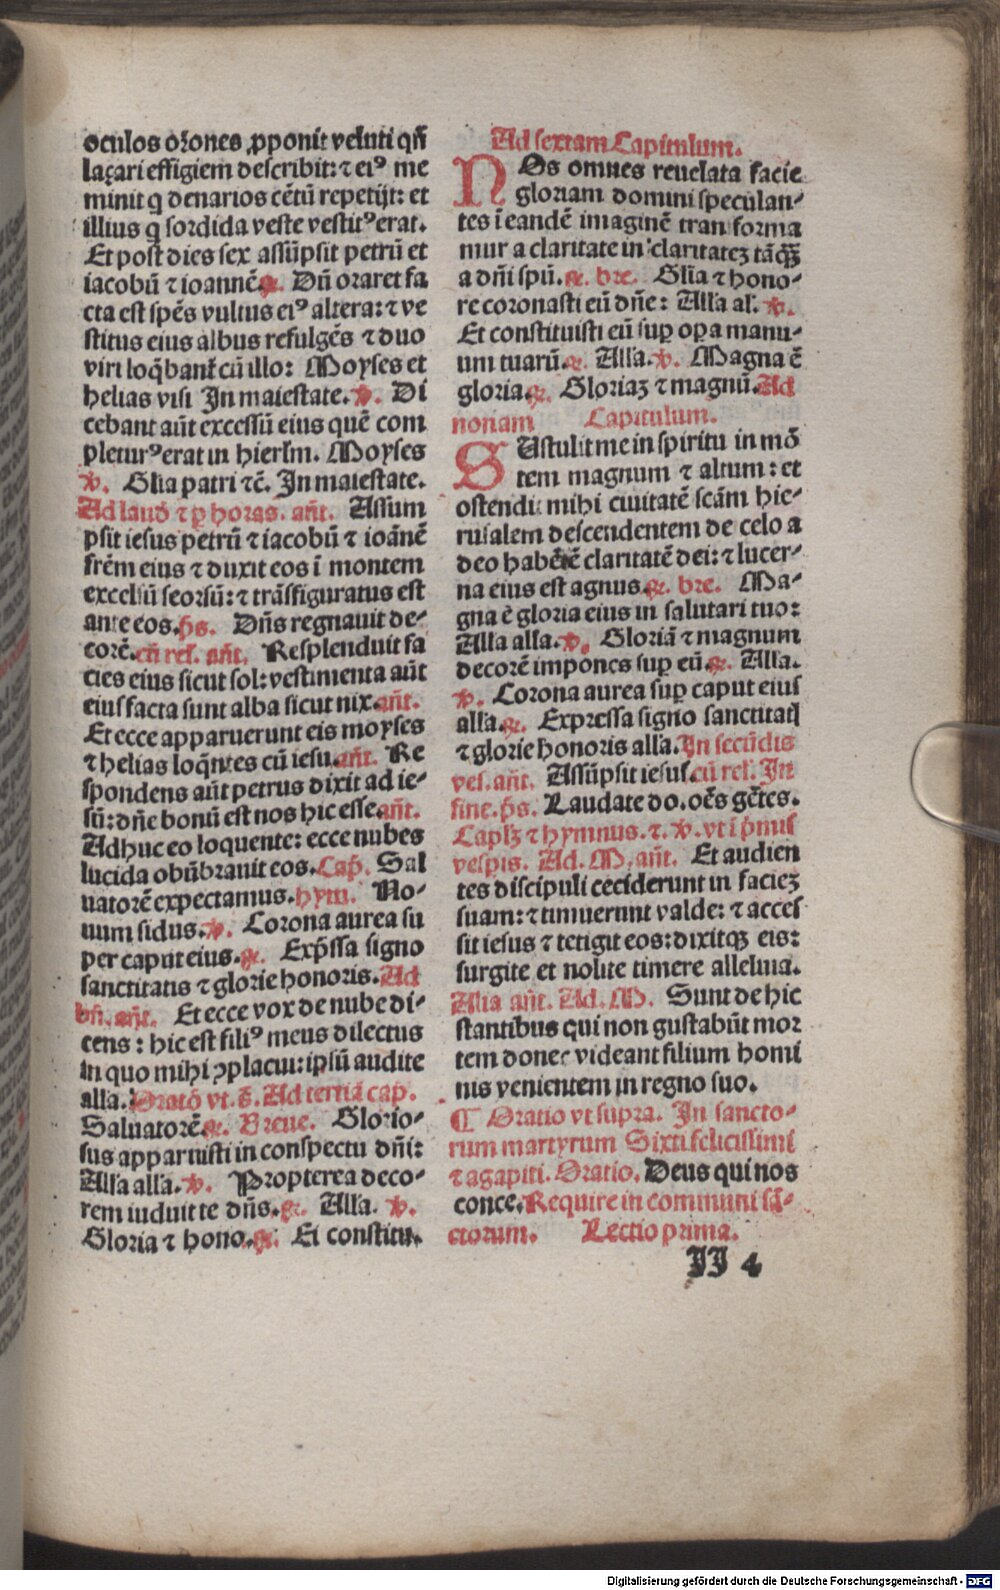 oculos oꝛones ꝓponit veluti qn̄
laçari effigiem describit: ⁊ eiꝰ me
minit q denarios cētū repetijt: et
illius q sordida veste vestitꝰ erat.
Et post dies sex assūpsit petrū et
iacobū ⁊ ioannē. ꝶ. Dū oraret fa
cta est spēs vultus eiꝰ altera: ⁊ ve
stitus eius albus refulgēs ⁊ duo
viri loq̄bant̄ cū illo: Moyses et
helias visi In maiestate. ℣. Di
cebant aūt excessū eius quē com
pleturꝰ erat in hierlm. Moyses
℣. Glia patri ⁊c̄. In maiestate.
Ad laud̄ ⁊ ꝑ horas. an̄t. Assum
psit iesus petrū ⁊ iacobū ⁊ ioānē
frēm eius ⁊ duxit eos ī montem
excelsū seorsū: ⁊ trāsfiguratus est
ante eos. p̄s. Dn̄s regnauit de-
corē. cū rel. an̄t. Resplenduit fa
cies eius sicut sol: vestimenta aūt
eius facta sunt alba sicut nix. an̄t.
Et ecce apparuerunt eis moyses
⁊ helias loq̄ntes cū iesu. an̄t. Re
spondens aūt petrus dixit ad ie-
sū: dn̄e bonū est nos hic esse. an̄t.
Adhuc eo loquente: ecce nubes
lucida obūbrauit eos. Cap̄. Sal
uatorē expectamus. hym. No-
uum sidus. ℣. Corona aurea su
per caput eius. ꝶ. Exp̄ssa signo
sanctitatis ⁊ glorie honoris. Ad
bn̄. an̄t. Et ecce vox de nube di-
cens: hic est filiꝰ meus dilectus
in quo mihi ↄplacui: ipsū audite
alla. Oratō vt. s̄. Ad tertiā cap̄.
Saluatorē. ꝶ. Breue. Glorio-
sus apparuisti in conspectu dn̄i:
Alla alla. ℣. Propterea deco-
rem induit te dn̄s. ꝶ. Alla. ℣.
Gloria ⁊ hono. ꝶ. Et constitu.
Ad sextam Capitulum.
NOs omnes reuelata facie
gloriam domini speculan-
tes ī eandē imaginē tran forma
mur a claritate in claritateꝫ tāqꝫ
a dn̄i spū. ꝶ. bre. Glia ⁊ hono-
re coronasti eū dn̄e: Alla al. ℣.
Et constituisti eū suꝑ oꝑa manu-
um tuarū. ꝶ. Alla. ℣. Magna ē
gloria. ꝶ. Gloriaꝫ ⁊ magnū. Ad
nonam Capitulum.
SUstulit me in spiritu in mō
tem magnum ⁊ altum: et
ostendit mihi ciuitatē scām hie-
rusalem descendentem de celo a
deo habētē claritatē dei: ⁊ lucer-
na eius est agnus. ꝶ. bre. Ma-
gna ē gloria eius in salutari tuo:
Alla alla. ℣. Gloriā ⁊ magnum
decorē impones suꝑ eū. ꝶ. Alla.
℣. Corona aurea suꝑ caput eius
alla. ꝶ. Expressa signo sanctitatꝭ
⁊ glorie honoris alla. In secūdis
ves. an̄t. Assūpsit iesus. cū rel. In
fine. p̄s. Laudate do. oēs gētes.
Caplꝫ ⁊ hymnus. ⁊. ℣. vt ī p̄mis
vespis. Ad. M. an̄t. Et audien
tes discipuli ceciderunt in facieꝫ
suam: ⁊ timuerunt valde: ⁊ acces
sit iesus ⁊ tetigit eos: dixitqꝫ eis:
surgite et nolite timere alleluia.
Alia an̄t. Ad. M. Sunt de hic
stantibus qui non gustabūt mor
tem donec videant filium homi
nis venientem in regno suo.
¶ Oratio vt supra. In sancto-
rum martyrum Sixti felicissimi
⁊ agapiti. Oratio. Deus qui nos
conce. Require in communi sā-
ctorum. Lectio prima.
II 4
Digitalisierung gefördert durch die Deutsche Forschungsgemeinschaft - DFG